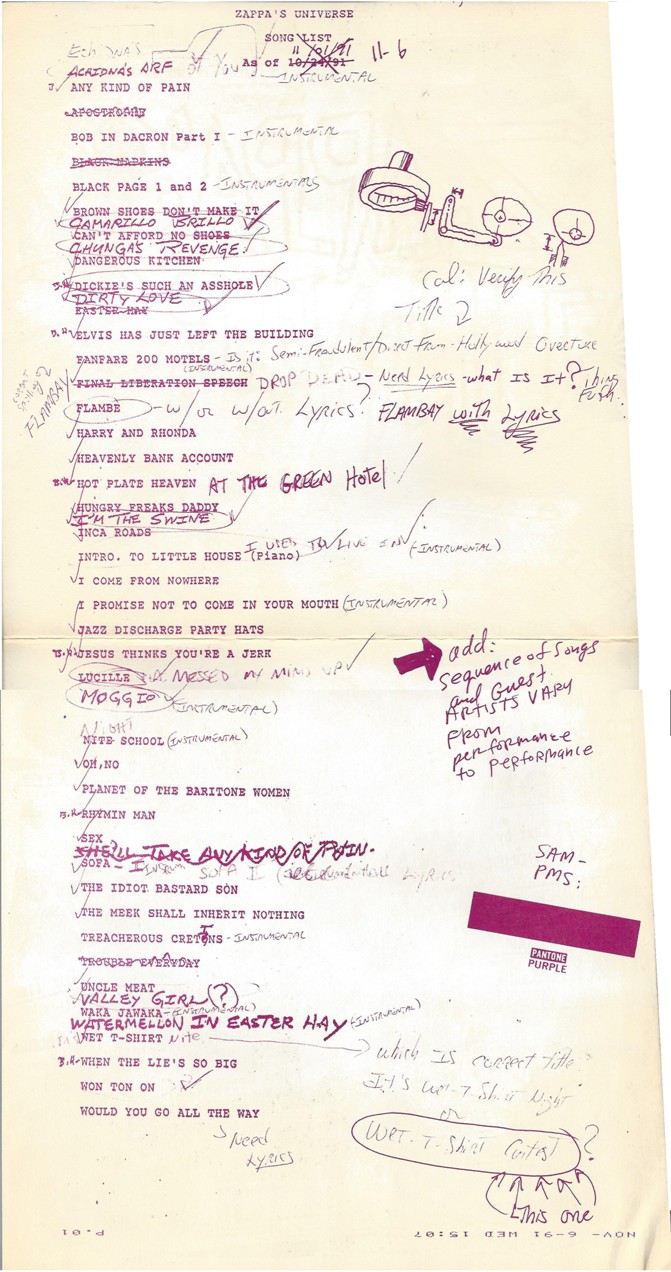 ZAPPA'S UNIVERSE
SONG LIST
11/01/91
11-6
As of 10/24/91
ECHIDNA'S ARF OF YOU - INSTRUMENTAL
ANY KIND OF PAIN
APOSTROPHY
BOB IN DACRON Part I - INSTRUMENTAL
BLACK NAPKINS
BLACK PAGE 1 and 2 - INSTRUMENTALS
BROWN SHOES DON'T MAKE IT
CAMARILLO BRILLO
CAN'T AFFORD NO SHOES
CHUNGA'S REVENGE
DANGEROUS KITCHEN
DICKIE'S SUCH AN ASSHOLE
DIRTY LOVE
EASTER HAY
Cal: Verify This
Title
ELVIS HAS JUST LEFT THE BUILDING
FANFARE 200 MOTELS - Is it: Semi-Fraudulent/Direct-From-Hollywood Overture
(INSTRUMENTAL)
FINAL LIBERATION SPEECH DROP DEAD - Need Lyrics - what Is It?
FLAMBAY
FLAMBÉ - w/ or w/out Lyrics? FLAMBAY with Lyrics
HARRY AND RHONDA
HEAVENLY BANK ACCOUNT
B.H. HOT PLATE HEAVEN AT THE GREEN Hotel
HUNGRY FREAKS DADDY
I'M THE SWINE
INCA ROADS
INTRO. TO LITTLE HOUSE I USED TO LIVE IN (Piano) (-INSTRUMENTAL)
I COME FROM NOWHERE
I PROMISE NOT TO COME IN YOUR MOUTH (INSTRUMENTAL)
JAZZ DISCHARGE PARTY HATS
B.H. JESUS THINKS YOU'RE A JERK
LUCILLE HAS MESSED MY MIND UP
MOGGIO (INSTRUMENTAL)
add:
Sequence of Songs
and Guest
ARTISTS VARY
FROM
performance
to performance
NIGHT
NITE SCHOOL (INSTRUMENTAL)
OH, NO
PLANET OF THE BARITONE WOMEN
B.H. RHYMIN MAN
SEX
SHE'LL TAKE ANY KIND OF PAIN.
SOFA - I INSTRUM SOFA II Lyrics
THE IDIOT BASTARD SON
THE MEEK SHALL INHERIT NOTHING
TREACHEROUS CRETINS - INSTRUMENTAL
TROUBLE EVERYDAY
SAM-
PMS:
PANTONE
PURPLE
UNCLE MEAT
VALLEY GIRL (?)
WAKA JAWAKA - (INSTRUMENTAL)
WATERMELLON IN EASTER HAY (-INSTRUMENTAL)
WET T-SHIRT Nite
B.H. WHEN THE LIE'S SO BIG
WON TON ON
WOULD YOU GO ALL THE WAY
Need
Lyrics
which Is correct title
It's Wet-T-Shirt Night
or
Wet-T-Shirt Contest?
This one
NOV- 6-91 WED 15:07
P.01